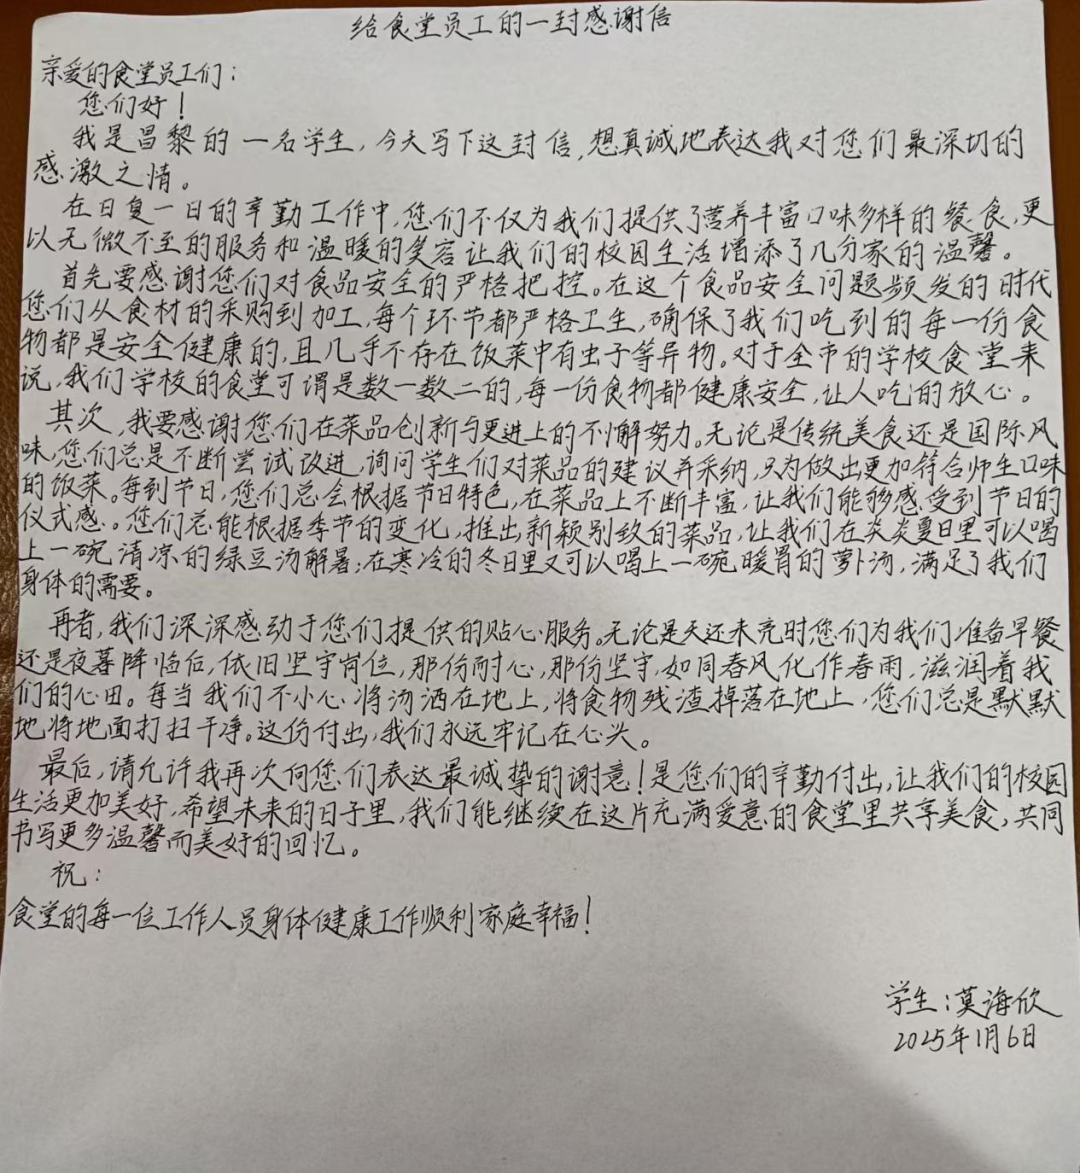 给食堂员工的一封感谢信
亲爱的食堂员工们：
您们好！
我是昌黎的一名学生，今天写下这封信，想真诚地表达我对您们最深切的
感激之情。
在日复一日的辛勤工作中，您们不仅为我们提供了营养丰富口味多样的餐食，更
以无微不至的服务和温暖的笑容让我们的校园生活增添了几分家的温馨。
首先要感谢您们对食品安全的严格把控。在这个食品安全问题频发的时代
您们从食材的采购到加工，每个环节都严格卫生，确保了我们吃到的每一份食
物都是安全健康的，且几乎不存在饭菜中有虫子等异物。对于全市的学校食堂来
说，我们学校的食堂可谓是数一数二的，每一份食物都健康安全，让人吃的放心。
其次，我要感谢您们在菜品创新与更进上的不懈努力。无论是传统美食还是国际风
味，您们总是不断尝试改进，询问学生们对菜品的建议并采纳，只为做出更加符合师生口味
的饭菜。每到节日，您们总会根据节日特色，在菜品上不断丰富，让我们能够感受到节日的
仪式感。您们总能根据季节的变化，推出新颖别致的菜品，让我们在炎炎夏日里可以喝
上一碗清凉的绿豆汤解暑；在寒冷的冬日里又可以喝上一碗暖胃的萝卜汤，满足了我们
身体的需要。
再者，我们深深感动于您们提供的贴心服务。无论是天还未亮时您们为我们准备早餐
还是夜暮降临后，依旧坚守岗位，那份耐心，那份坚守，如同春风化作春雨，滋润着我
们的心田。每当我们不小心将汤洒在地上，将食物残渣掉落在地上，您们总是默默
地将地面打扫干净。这份付出，我们永远牢记在心头。
最后，请允许我再次向您们表达最诚挚的谢意！是您们的辛勤付出，让我们的校园
生活更加美好，希望未来的日子里，我们能继续在这片充满爱意的食堂里共享美食，共同
书写更多温馨而美好的回忆。
祝：
食堂的每一位工作人员身体健康工作顺利家庭幸福！
学生：莫海欣
2025年1月6日